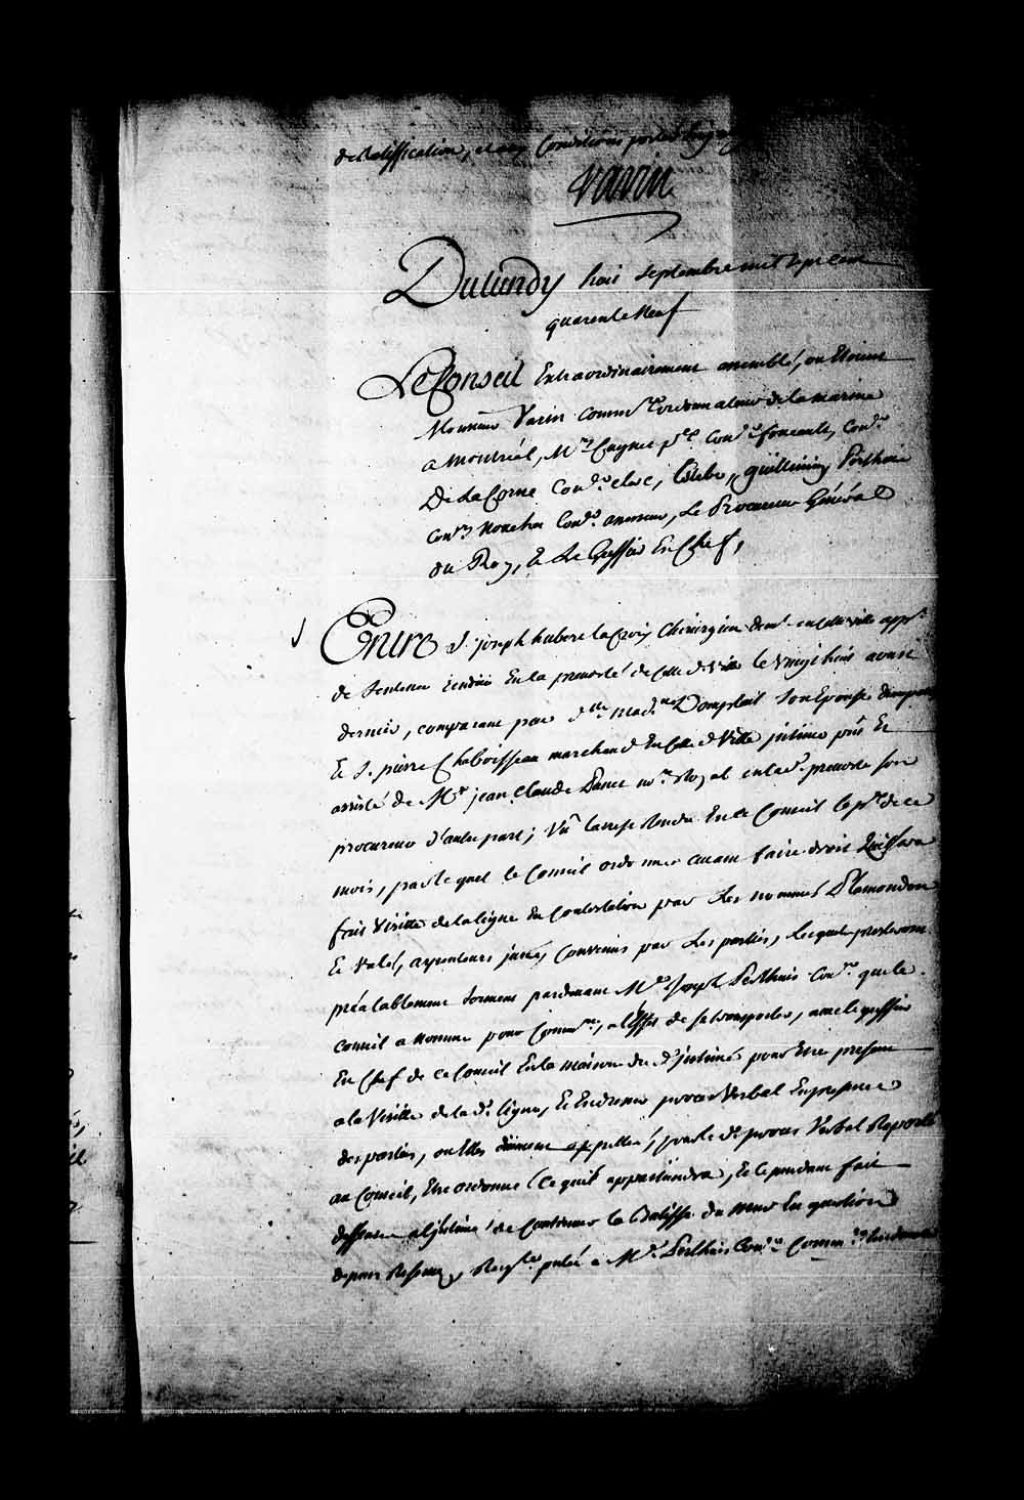 de Ratiffication, et aux Conditions portés
Varin
Du Lundy trois septembre mil sept cent
quarente Neuf
Le Conseil Extraordinairement assemblé, ou Etoient
Monsieur Varin Comm.re ordonnateur de la marine
a Montréal, M.rs Cugnet p.er Con.er foucault, Con.er
De La Corne Con.er clerc, Guillimin Perthuis
Con.ers Con.er assesseur, Le Procureur Général
du Roy, & Le Greffier En Chef,
Entre S. joseph hubert la Croix Chirurgien dem.t en cette ville app.t
de Sentence rendüe En la prevosté de cette d. Ville le vingt huit aoust
dernier, comparant par d.lle Mad.ne Domplait son Epouse d'une part
Et S. pierre Chaboisseau marchand En cette d. Ville intimé p.nt Et
assisté de M.e jean Claude Panet no.re Royal en lad. prevosté son
procureur d'autre part; Vû l'arrest Rendu En ce Conseil le p.er de ce
mois, par lequel le Conseil ordonne avant faire droit qu'il sera
fait Visitte de la ligne En Contestation par Les nommés Plamondon
Et Vallet, arpenteurs jurés, Convenus par Les parties, lesquels presteront
préalablement serment pardevant M.e Joseph Perthuis Con.er que le
Conseil a nommé pour Comm.re, a l'Effet de se transporter, avec le greffier
En Chef de ce Conseil En la maison du d. intimé pour Etre present
a la Visitte de la d. ligne, Et En dresser procès Verbal En presence
des parties, ou Elles düement appellées, pour le d. procès Verbal Raporté
au Conseil, Etre ordonné Ce qu'il appartiendra, Et Cependant fait
deffense a l'intimé de Continuer la Batisse du mur En question
depens Reservez, Req.te présé a M.e Perthuis Con.er Comm.re